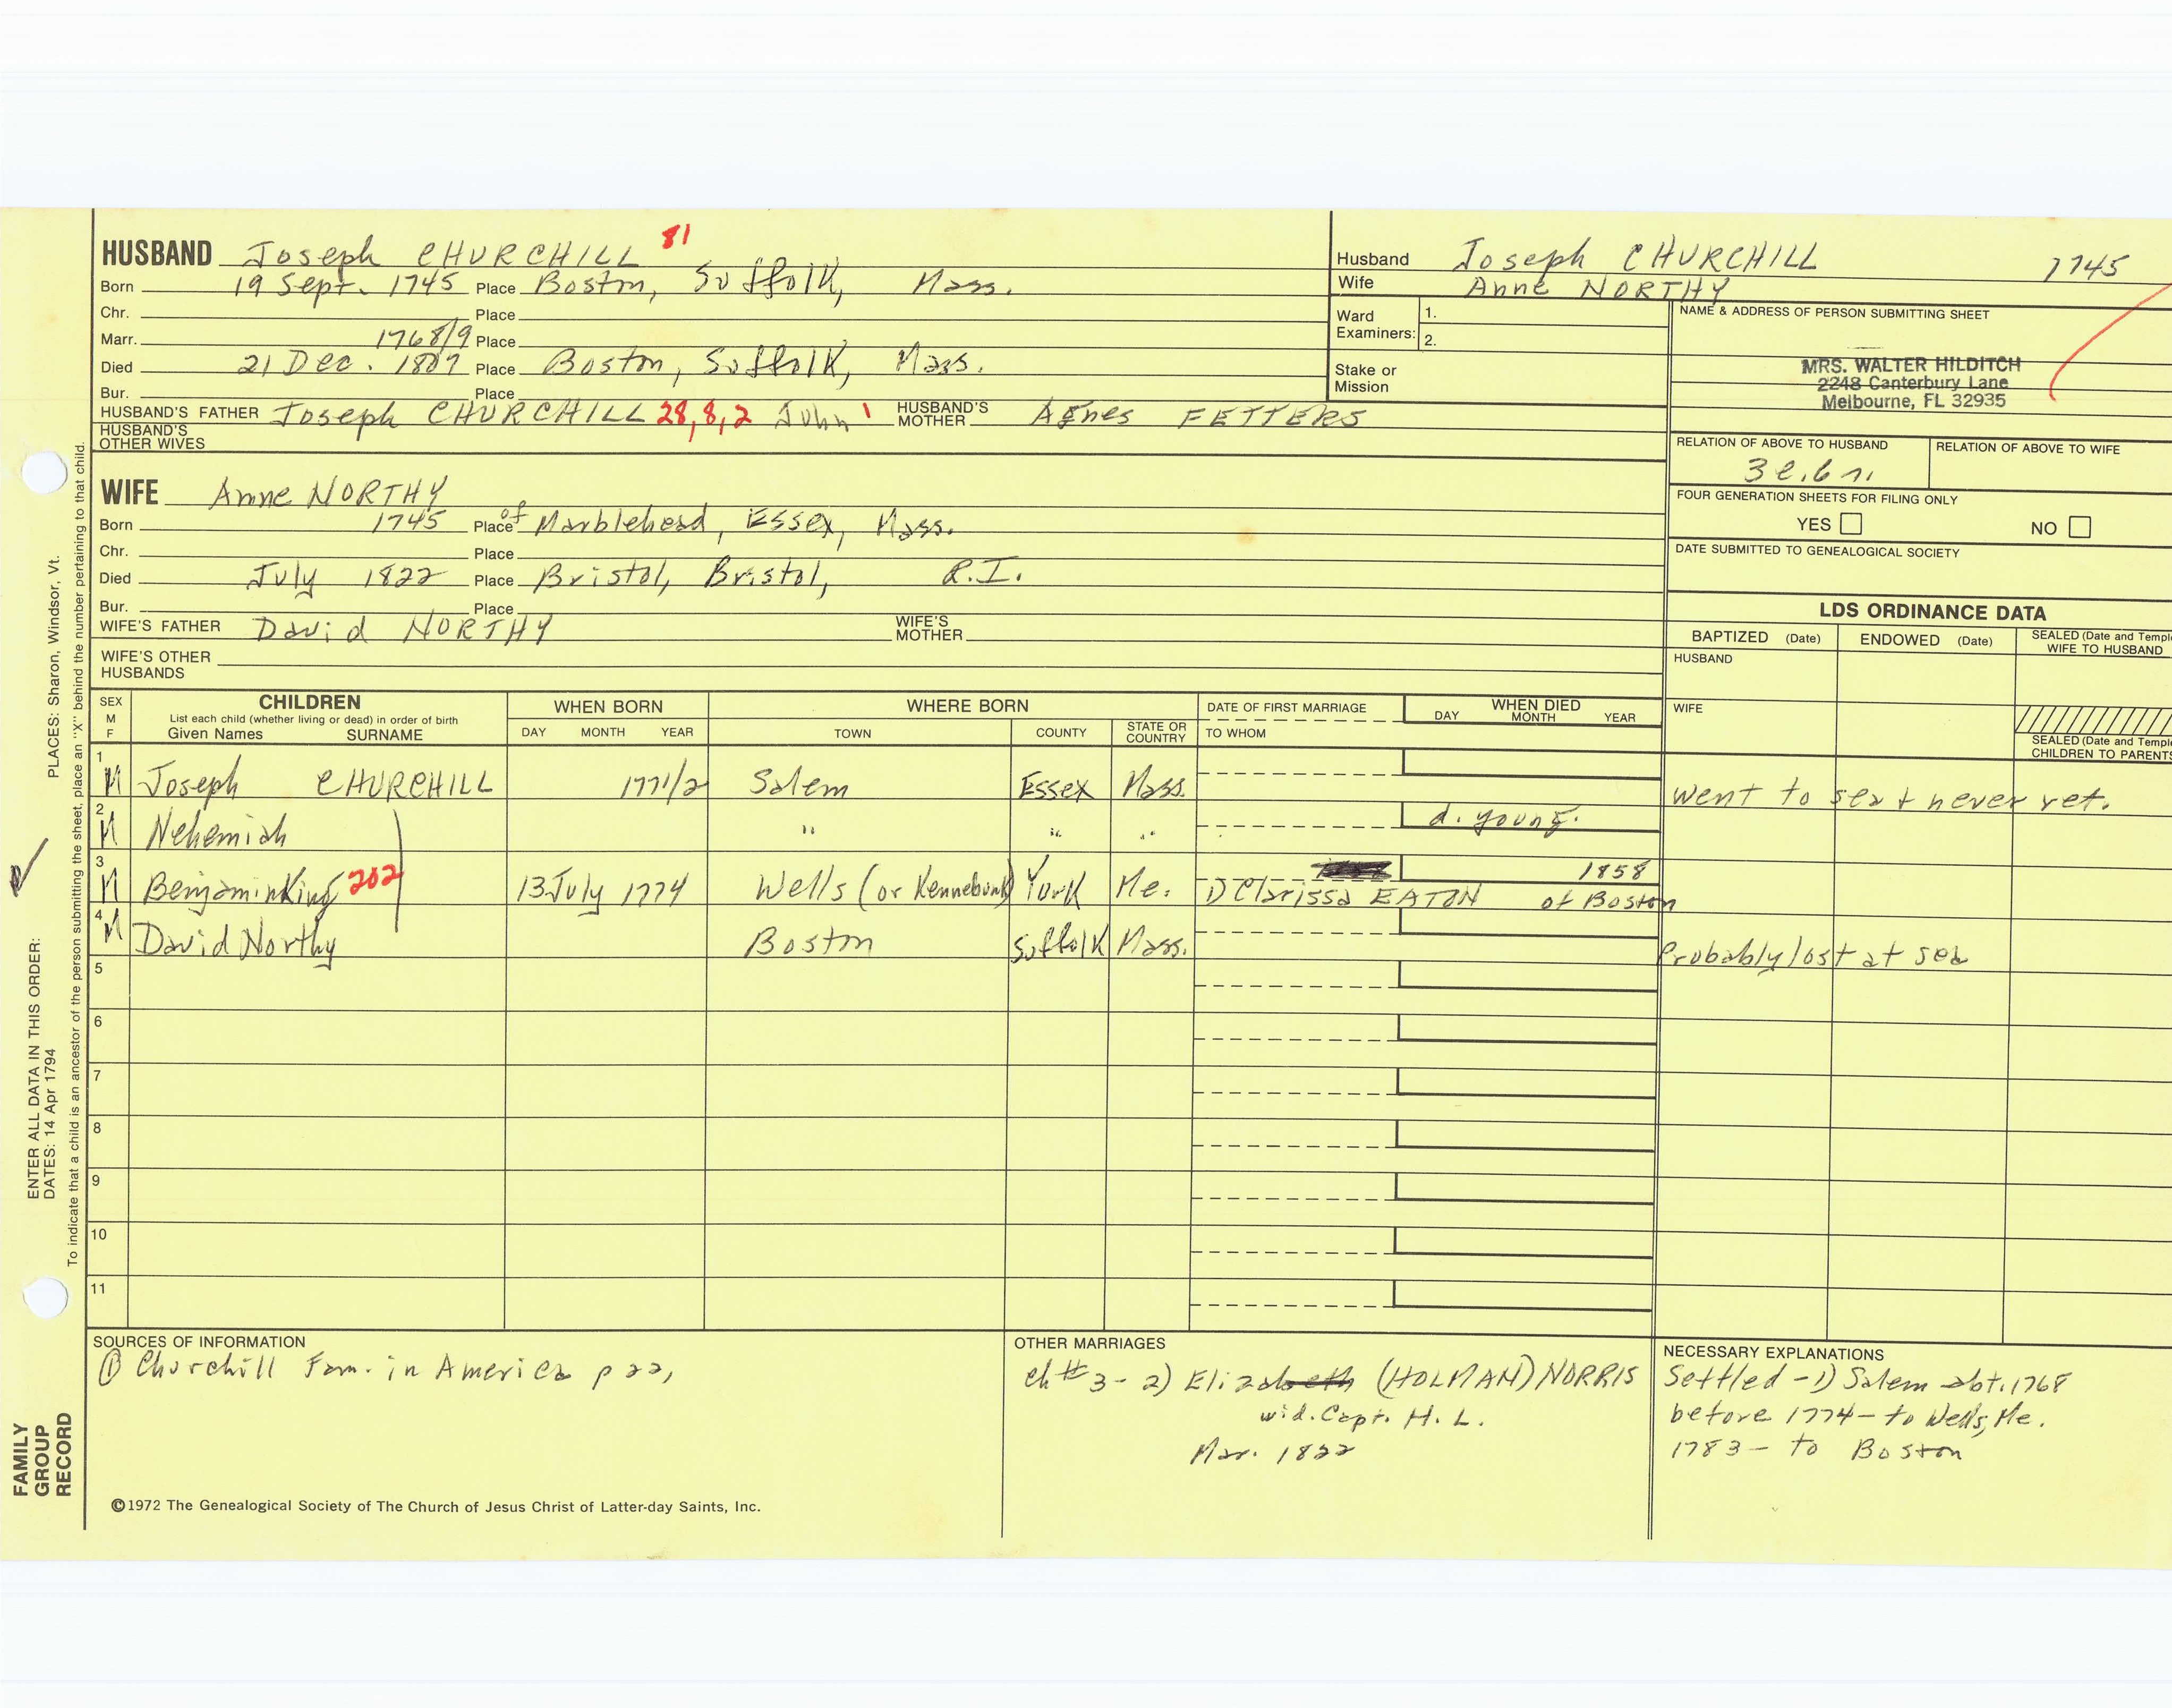 HUSBAND Joseph CHURCHILL 81
Born 19 Sept. 1745 Place Boston, Suffolk, Mass.
Chr. Place
Marr. 1768/9 Place
Died 21 Dec. 1807 Place Boston, Suffolk, Mass.
Bur. Place
HUSBAND'S FATHER Joseph CHURCHILL 28, 8, 2 John 1 HUSBAND'S MOTHER Agnes FETTERS
HUSBAND'S OTHER WIVES
Husband Joseph CHURCHILL 1745
Wife Anne NORTHY
Ward Examiners: 1.
2.
Stake or Mission
NAME & ADDRESS OF PERSON SUBMITTING SHEET
MRS. WALTER HILDITCH
2248 Canterbury Lane
Melbourne, FL 32935
RELATION OF ABOVE TO HUSBAND RELATION OF ABOVE TO WIFE
3c.6r.
FOUR GENERATION SHEETS FOR FILING ONLY
YES NO
DATE SUBMITTED TO GENEALOGICAL SOCIETY
WIFE Anne NORTHY
Born 1745 Place of Marblehead, Essex, Mass.
Chr. Place
Died July 1822 Place Bristol, Bristol, R.I.
Bur. Place
WIFE'S FATHER David NORTHY WIFE'S MOTHER
WIFE'S OTHER HUSBANDS
LDS ORDINANCE DATA
BAPTIZED (Date) ENDOWED (Date) SEALED (Date and Templ
WIFE TO HUSBAND
HUSBAND
WIFE
SEALED (Date and Templ
CHILDREN TO PARENTS
SEX M F CHILDREN WHEN BORN WHERE BORN DATE OF FIRST MARRIAGE WHEN DIED
List each child (whether living or dead) in order of birth
Given Names SURNAME DAY MONTH YEAR TOWN COUNTY STATE OR COUNTRY TO WHOM DAY MONTH YEAR
1 M Joseph CHURCHILL 1771/2 Salem Essex Mass. Went to sea & never ret.
2 M Nehemiah " " " d. young.
3 M Benjamin King 202 13 July 1774 Wells (or Kennebunk) York Me. 1) Clarissa EATON of Boston 1858
4 M David Northy Boston Suffolk Mass. Probably lost at sea
5
6
7
8
9
10
11
SOURCES OF INFORMATION
① Churchill Fam. in America p 22,
OTHER MARRIAGES
ch #3 - 2) Elizabeth (HOLMAN) NORRIS
wid. Capt. H. L.
Mar. 1822
NECESSARY EXPLANATIONS
Settled - 1) Salem abt. 1768
before 1774 - to Wells, Me.
1783 - to Boston
©1972 The Genealogical Society of The Church of Jesus Christ of Latter-day Saints, Inc.
FAMILY GROUP RECORD
ENTER ALL DATA IN THIS ORDER:
DATES: 14 Apr 1794
PLACES: Sharon, Windsor, Vt.
To indicate that a child is an ancestor of the person submitting the sheet, place an "X" behind the number pertaining to that child.